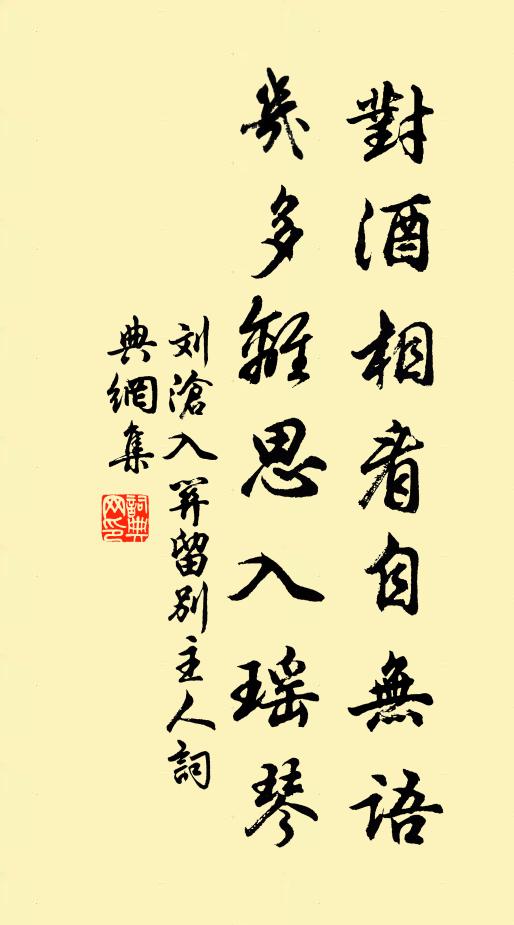 對酒相看自無語
幾多離思入瑶琴
刘滄入关留别主人詞
典網集
詞典
网印